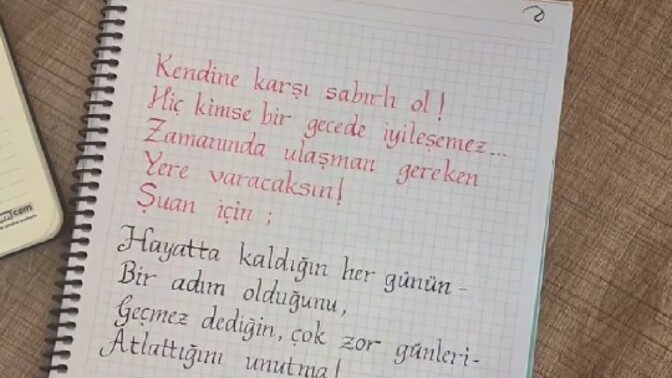 Kendine karşı sabırlı ol!
Hiç kimse bir gecede iyileşemez...
Zamanında ulaşman gereken
Yere varacaksın!
Şuan için ;
Hayatta kaldığın her günün-
Bir adım olduğunu,
Geçmez dediğin, çok zor günleri-
Atlattığını unutma!
com